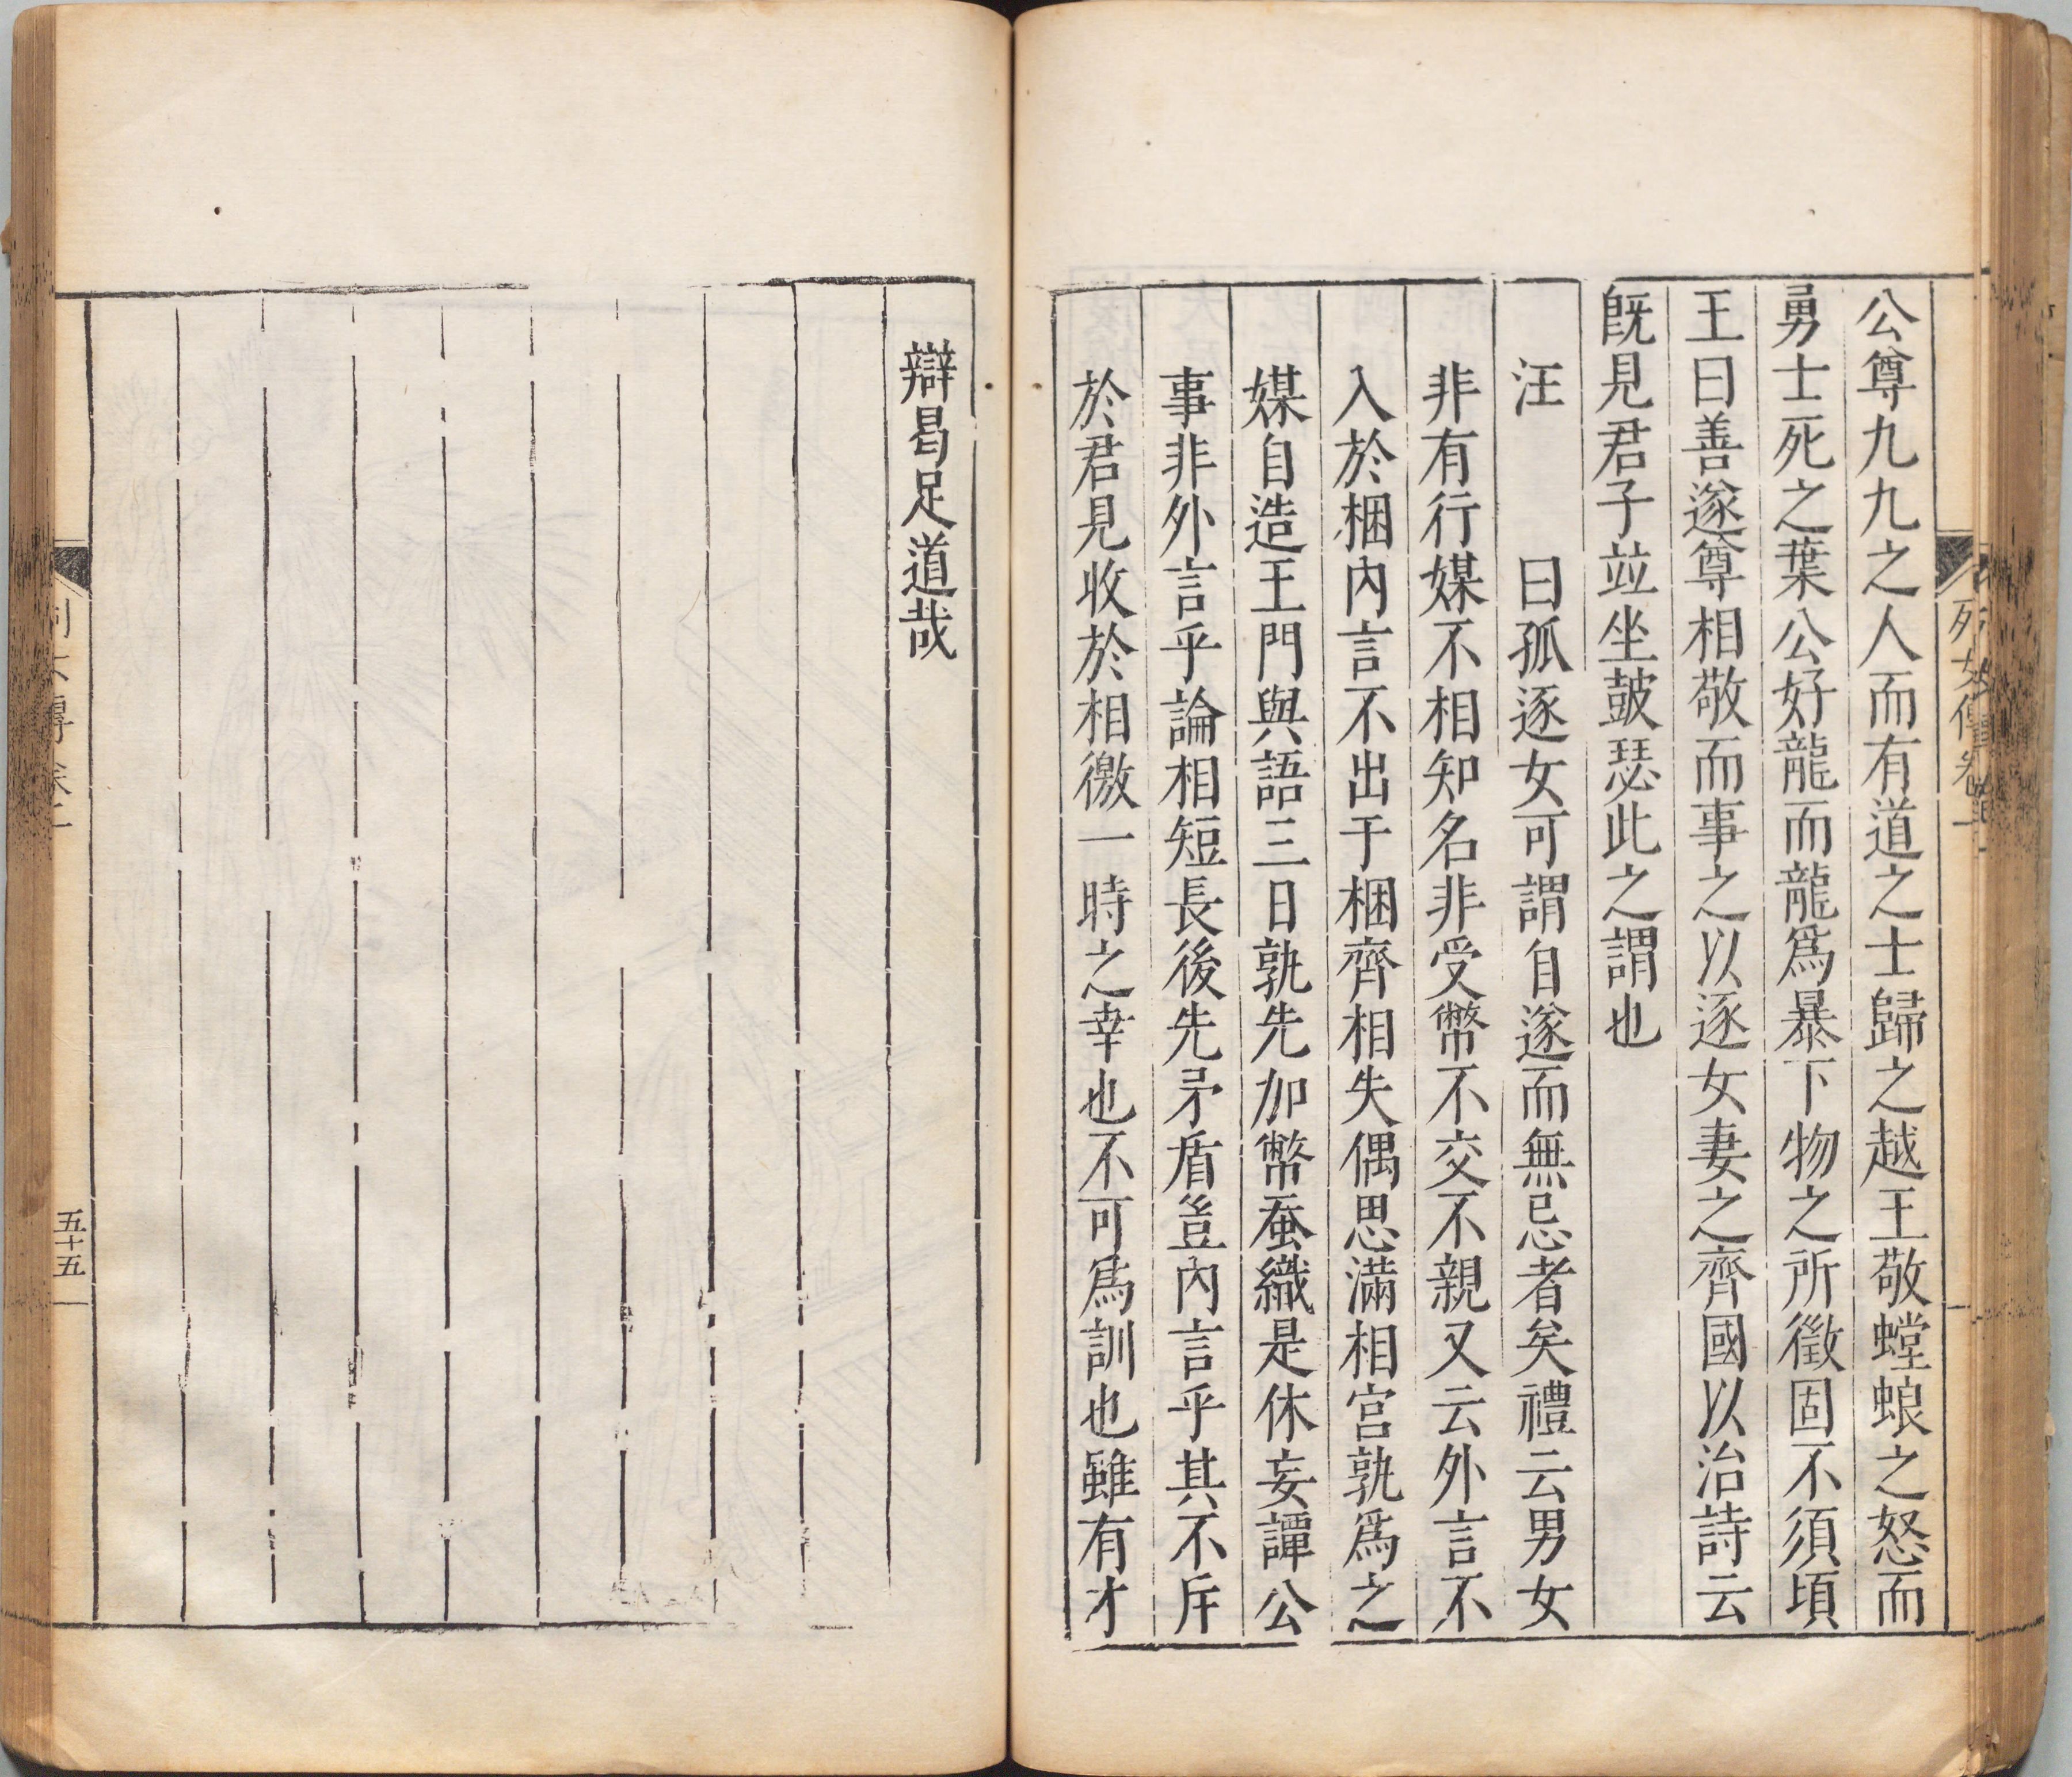 公尊九九之人而有道之士歸之越王敬螳蜋之怒而
勇士死之葉公好龍而龍爲暴下物之所徵固不須頃
王曰善遂尊相敬而事之以逐女妻之齊國以治詩云
旣見君子竝坐鼓瑟此之謂也
汪　　曰孤逐女可謂自遂而無忌者矣禮云男女
非有行媒不相知名非受幣不交不親又云外言不
入於梱內言不出于梱齊相失偶思滿相宮孰爲之
媒自造王門與語三日孰先加幣蚕織是休妄譚公
事非外言乎論相短長後先矛盾豈內言乎其不斥
於君見收於相徼一時之幸也不可爲訓也雖有才
辯曷足道哉
五十五